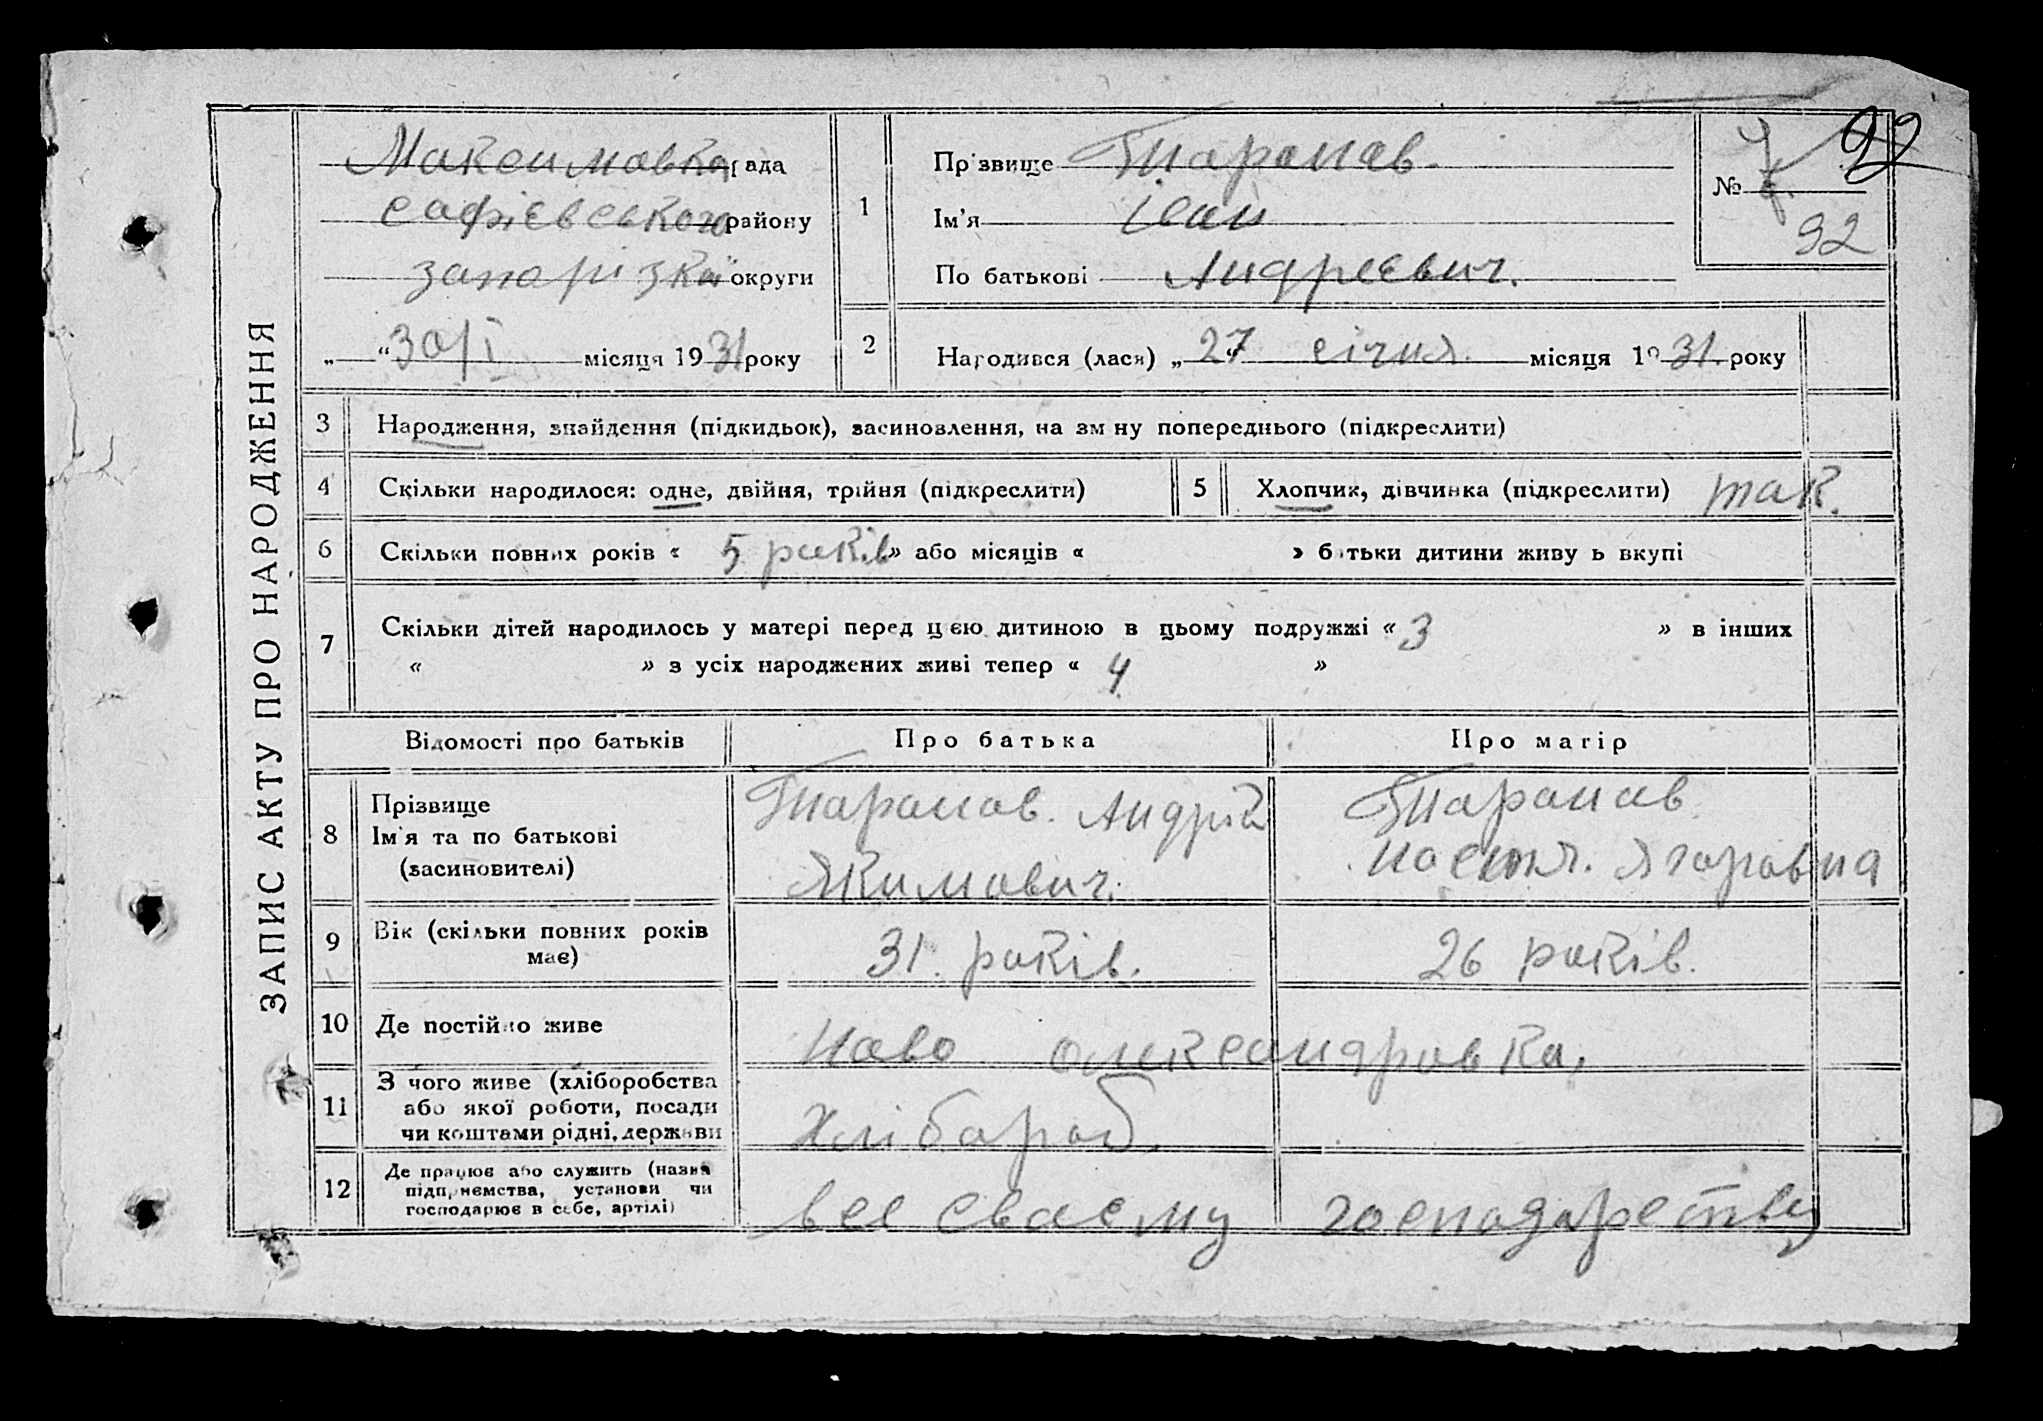 ЗАПИС АКТУ ПРО НАРОДЖЕННЯ
Максимовка рада
Софієвського району
Запорізка округи
„ “ 30/I місяця 1931 року
1
Прізвище Таранов.
Ім'я Іван
По батькові Андреєвич.
№ 7
92
92
2
Народився (лася) „27 січня. місяця 1931. року
3 Народження, знайдення (підкидьок), засиновлення, на зміну попереднього (підкреслити)
4 Скільки народилося: одне, двійня, трійня (підкреслити)
5 Хлопчик, дівчинка (підкреслити) так.
6 Скільки повних років « 5 раків » або місяців « » батьки дитини живуть вкупі
7 Скільки дітей народилось у матері перед цією дитиною в цьому подружжі « 3 » в інших
« » з усіх народжених живі тепер « 4 »
Відомості про батьків Про батька Про матір
8 Прізвище
Ім'я та по батькові
(засиновителі)
Таранов. Андрій
Якимович.
Таранов
Наст. Ягоравна
9 Вік (скільки повних років
має)
31. раків. 26 раків.
10 Де постійно живе Ново Олександровка,
11 З чого живе (хліборобства
або якої роботи, посади
чи коштами рідні, держави
Хлібароб.
12 Де працює або служить (назва
підприємства, установи чи
господарює в себе, артілі)
все сваєму господарству